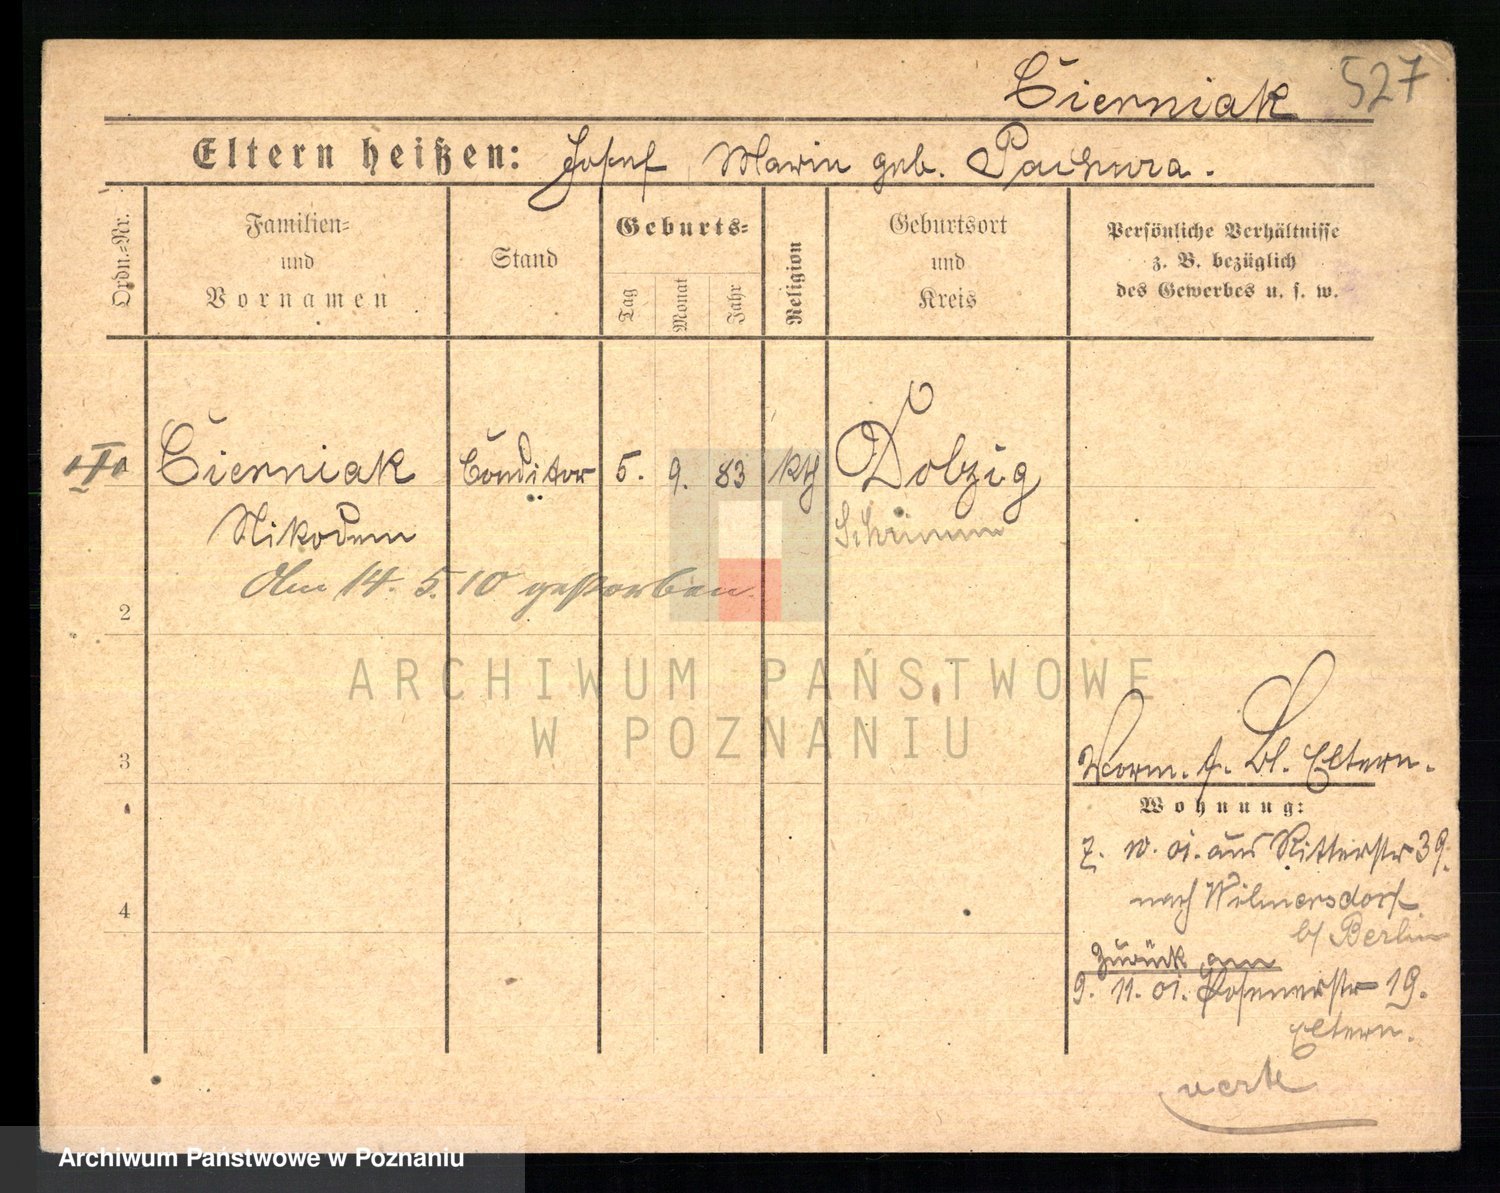 Cierniak 527
Eltern heißen: Josef, Marie geb. Pachura.
Ordn.-Nr.
Familien-
und
Vornamen
Stand
Geburts-
Tag
Monat
Jahr
Religion
Geburtsort
und
Kreis
Persönliche Verhältnisse
z. B. bezüglich
des Gewerbes u. s. w.
Cierniak Conditor 5. 9. 83 kth Dolzig
Nikodem Schrimm
Am 14. 5. 10 gestorben.
2
ARCHIWUM PAŃSTWOWE
W POZNANIU
3
Vorm. f. Bl. Eltern.
Wohnung:
7. 10. 01. aus Ritterstr 39.
nach Wilmersdorf
b/ Berlin
4
zurück am
9. 11. 01. Posenerstr 19.
Eltern.
Archiwum Państwowe w Poznaniu